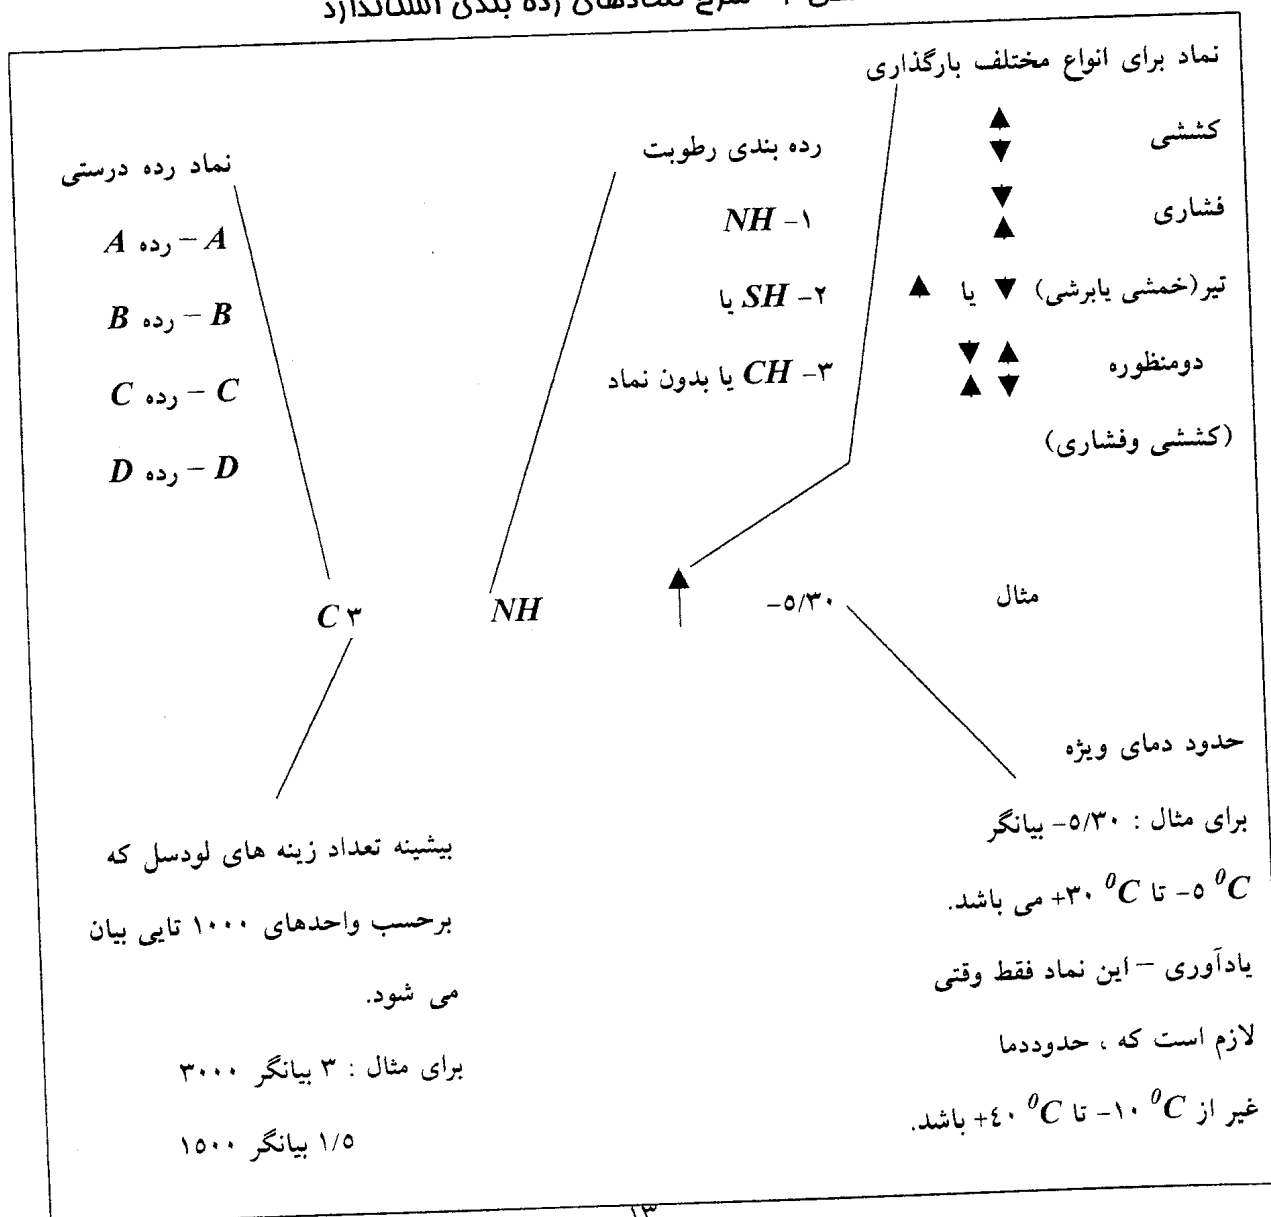 شرح نمادهای رده بندی استاندارد
نماد برای انواع مختلف بارگذاری
کششی
فشاری
تیر(خمشی یابرشی) ▼ یا ▲
دومنظوره
(کششی وفشاری)
رده بندی رطوبت
۱- NH
۲- SH یا
۳- CH یا بدون نماد
نماد رده درستی
A – رده A
B – رده B
C – رده C
D – رده D
مثال
-۵/۳۰
NH
C ۳
حدود دمای ویژه
برای مثال : ۵/۳۰- بیانگر
۵- ⁰C تا ۳۰+ ⁰C می باشد.
یادآوری – این نماد فقط وقتی
لازم است که ، حدوددما
غیر از ۱۰- ⁰C تا ۴۰+ ⁰C باشد.
بیشینه تعداد زینه های لودسل که
برحسب واحدهای ۱۰۰۰ تایی بیان
می شود.
برای مثال : ۳ بیانگر ۳۰۰۰
۱/۵ بیانگر ۱۵۰۰
۱۳